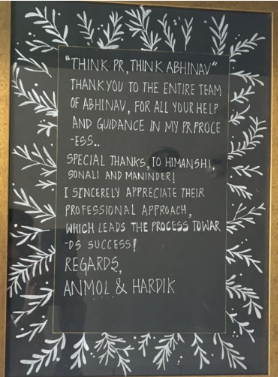 "THINK PR, THINK ABHINAV"
THANKYOU TO THE ENTIRE TEAM
OF ABHINAV, FOR ALL YOUR HELP
AND GUIDANCE IN MY PR PROCE
-ESS..
SPECIAL THANKS, TO HIMANSHI,
SONALI AND MANINDER!
I SINCERELY APPRECIATE THEIR
PROFESSIONAL APPROACH,
WHICH LEADS THE PROCESS TOWAR
-DS SUCCESS!
REGARDS,
ANMOL & HARDIK